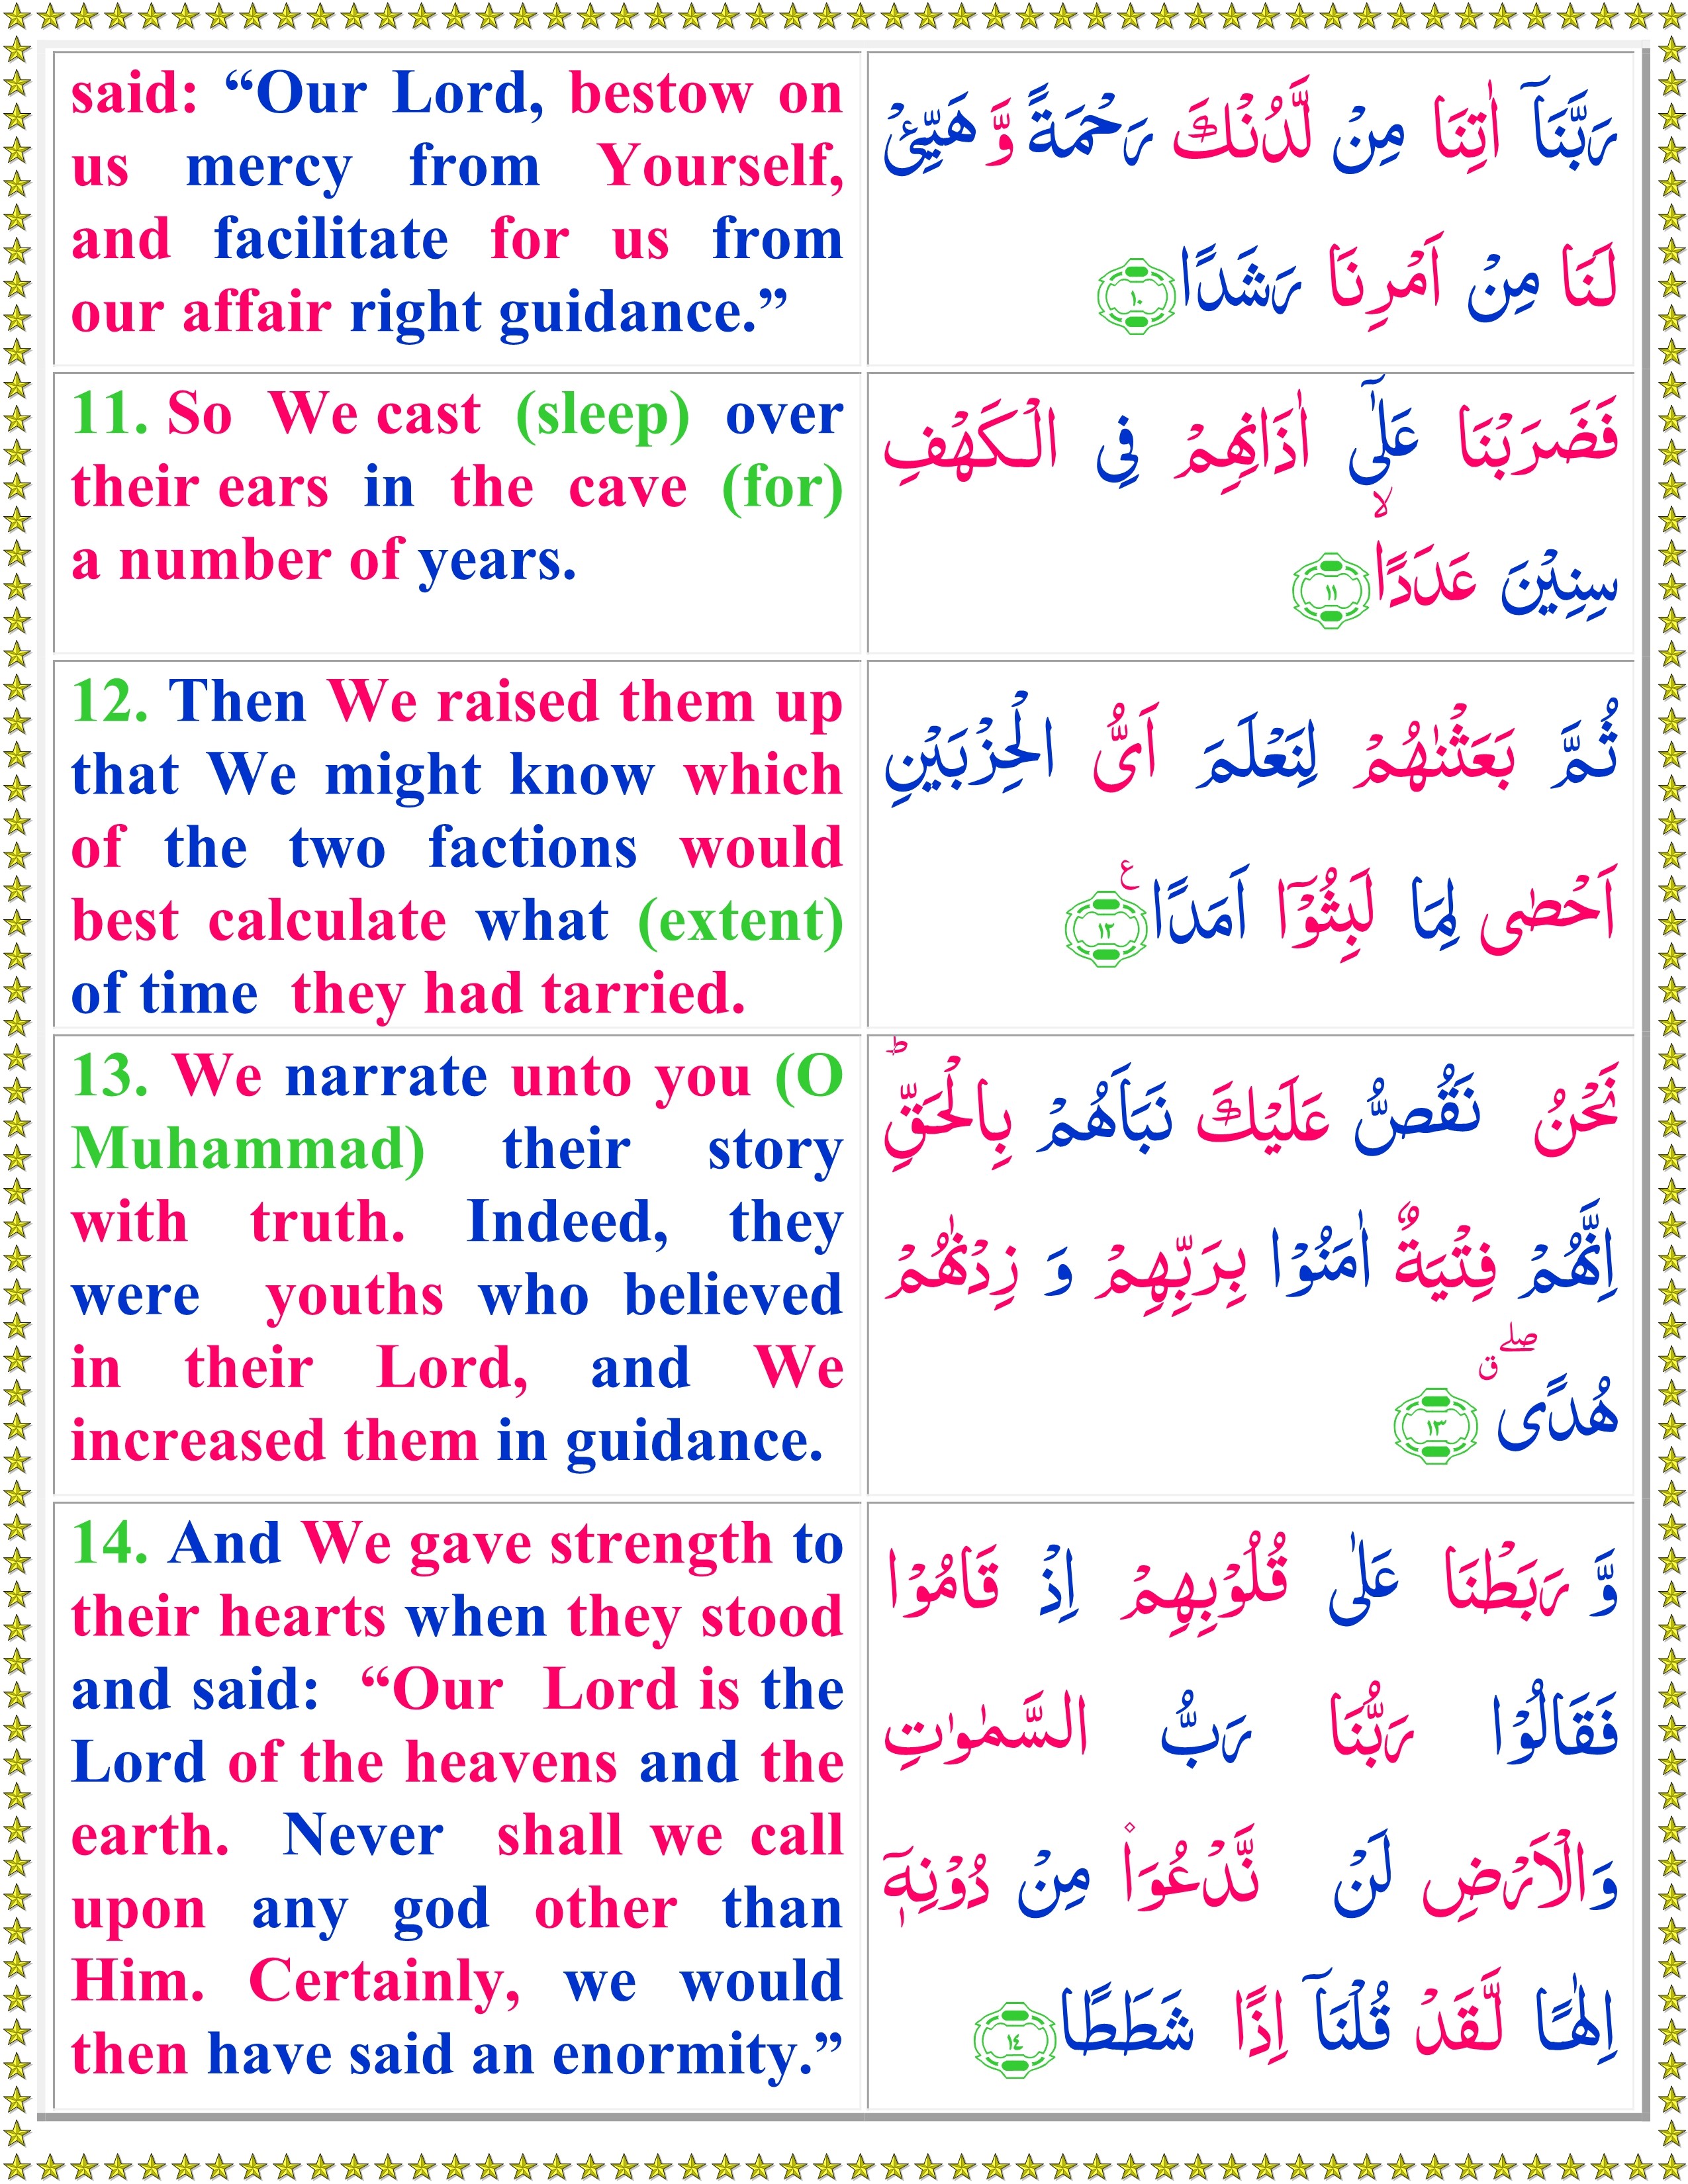 said: “Our Lord, bestow on
us mercy from Yourself,
and facilitate for us from
our affair right guidance.”
رَبَّنَاۤ اٰتِنَا مِنْ لَّدُنْكَ رَحْمَةً وَّ هَیِّئْ
لَنَا مِنْ اَمْرِنَا رَشَدًا ۱۰
11. So We cast (sleep) over
their ears in the cave (for)
a number of years.
فَضَرَبْنَا عَلٰۤی اٰذَانِهِمْ فِی الْكَهْفِ
سِنِیْنَ عَدَدًا ۙ ۱۱
12. Then We raised them up
that We might know which
of the two factions would
best calculate what (extent)
of time they had tarried.
ثُمَّ بَعَثْنٰهُمْ لِنَعْلَمَ اَیُّ الْحِزْبَیْنِ
اَحْصٰی لِمَا لَبِثُوْۤا اَمَدًا ۱۲ ع
13. We narrate unto you (O
Muhammad) their story
with truth. Indeed, they
were youths who believed
in their Lord, and We
increased them in guidance.
نَحْنُ نَقُصُّ عَلَیْكَ نَبَاَهُمْ بِالْحَقِّ ؕ
اِنَّهُمْ فِتْیَةٌ اٰمَنُوْا بِرَبِّهِمْ وَ زِدْنٰهُمْ
هُدًی ۖ ق ۱۳
14. And We gave strength to
their hearts when they stood
and said: “Our Lord is the
Lord of the heavens and the
earth. Never shall we call
upon any god other than
Him. Certainly, we would
then have said an enormity.”
وَّ رَبَطْنَا عَلٰی قُلُوْبِهِمْ اِذْ قَامُوْا
فَقَالُوْا رَبُّنَا رَبُّ السَّمٰوٰتِ
وَالْاَرْضِ لَنْ نَّدْعُوَا۠ مِنْ دُوْنِهٖۤ
اِلٰهًا لَّقَدْ قُلْنَاۤ اِذًا شَطَطًا ۱٤